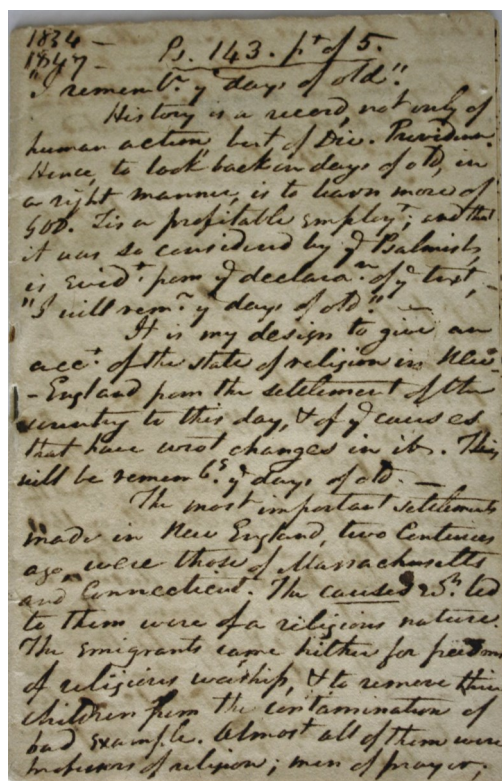 1834 -
1847 -
Ps. 143. pt of 5.
"I rememb.r y days of old."
History is a record, not only of
human action, but of Div. Providence.
Hence, to look back on days of old, in
a right manner, is to learn more of
God. Tis a profitable employt; and that
it was so considered by ye Psalmist,
is evidt from ye declaran of ye text, -
"I will remr ye days of old."
It is my design to give an
acct. of the state of religion in New-
-England from the settlement of the
country to this day, & of ye causes
that have wrot changes in it. This
will be remembg ye days of old. -
The most important settlements
made in New England, two Centuries
ago, were those of Massachusetts
and Connecticut. The causes led
to them were of a religious nature.
The Emigrants came hither for freedom
of religious worship, & to remove their
children from the contamination of
bad example. Almost all of them were
Professors of religion; men of prayer,